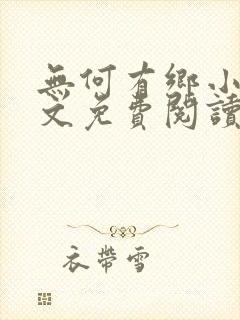 無何有鄉小
文免費閱讀
衣帶雪